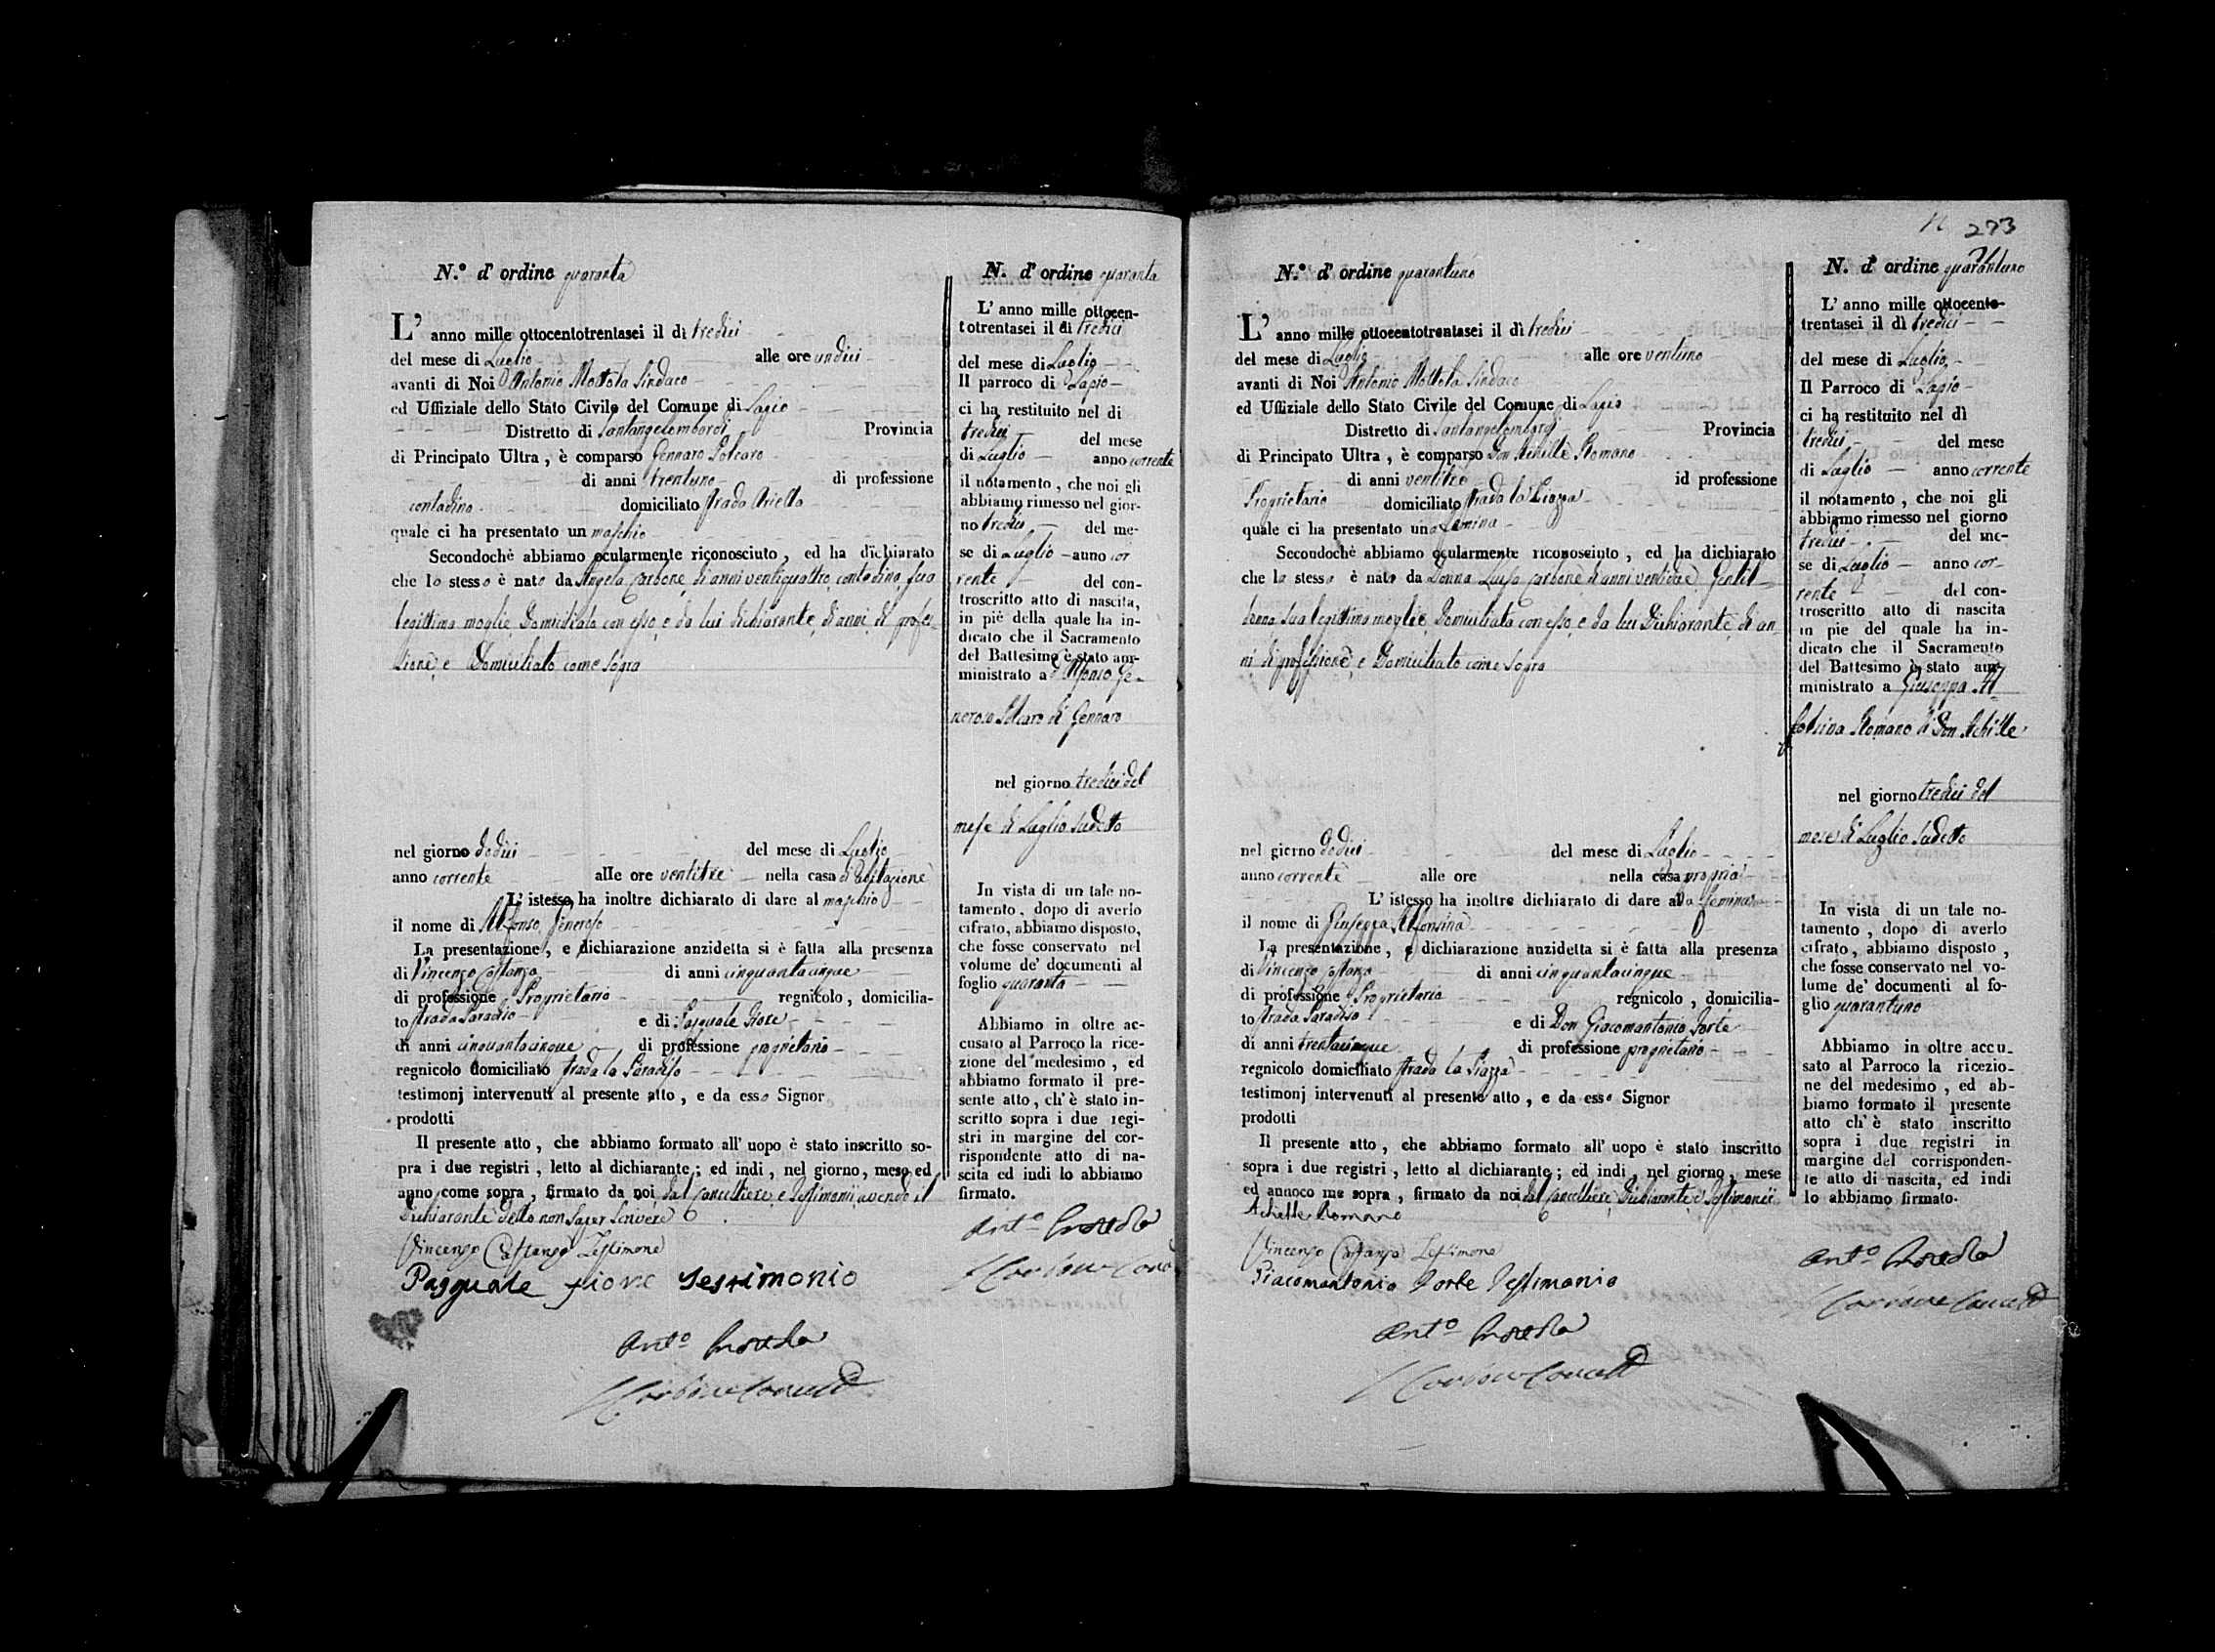 N.° d'ordine quaranta
L'anno mille ottocentotrentasei il dì tredici
del mese di Luglio alle ore undici
avanti di Noi Antonio Mottola Sindaco
ed Uffiziale dello Stato Civile del Comune di Lapio
Distretto di Santangelombardi Provincia
di Principato Ultra, è comparso Gennaro Polcaro
di anni trentuno di professione
contadino domiciliato strada Ariella
quale ci ha presentato un maschio
Secondochè abbiamo ocularmente riconosciuto, ed ha dichiarato
che lo stesso è nato da Angela Carbone di anni ventiquattro contadina sua
legittima moglie Domiciliata con esso, e da lui dichiarante di anni, di profes-
sione, e Domiciliato come sopra
nel giorno dodici del mese di Luglio
anno corrente alle ore ventitre nella casa di abitazione
L'istesso ha inoltre dichiarato di dare al maschio
il nome di Alfonso Generoso
La presentazione, e dichiarazione anzidetta si è fatta alla presenza
di Vincenzo Costanzo di anni cinquantacinque
di professione Proprietario regnicolo, domicilia-
to strada Paradiso e di Pasquale Fiore
di anni cinquantacinque di professione proprietario
regnicolo domiciliato strada lo Paradiso
testimonj intervenuti al presente atto, e da esso Signor
prodotti
Il presente atto, che abbiamo formato all'uopo è stato inscritto so-
pra i due registri, letto al dichiarante; ed indi, nel giorno, mese, ed
anno come sopra, firmato da noi dal Cancelliere, e Testimonii avendo il
Dichiarante detto non saper scrivere
Vincenzo Costanzo Testimone
Pasquale fiore testimonio
Ant.o Mottola
N. d'ordine quaranta
L'anno mille ottocen-
totrentasei il dì tredici
del mese di Luglio
Il parroco di Lapio
ci ha restituito nel dì
tredici del mese
di Luglio anno corrente
il notamento, che noi gli
abbiamo rimesso nel gior-
no tredici del me-
se di Luglio anno cor
rente del con-
troscritto atto di nascita,
in piè della quale ha in-
dicato che il Sacramento
del Battesimo è stato am-
ministrato a Alfonso Ge-
neroso Polcaro di Gennaro
nel giorno tredici del
mese di Luglio sudetto
In vista di un tale no-
tamento, dopo di averlo
cifrato, abbiamo disposto,
che fosse conservato nel
volume de' documenti al
foglio quaranta
Abbiamo in oltre ac-
cusato al Parroco la rice-
zione del medesimo, ed
abbiamo formato il pre-
sente atto, ch'è stato in-
scritto sopra i due regi-
stri in margine del cor-
rispondente atto di na-
scita ed indi lo abbiamo
firmato.
Ant.o Mottola
273
N.° d'ordine quarantuno
L'anno mille ottocentotrentasei il dì tredici
del mese di Luglio alle ore ventuno
avanti di Noi Antonio Mottola Sindaco
ed Uffiziale dello Stato Civile del Comune di Lapio
Distretto di Santangelombardi Provincia
di Principato Ultra, è comparso Don Achille Romano
di anni ventitre id professione
Proprietario domiciliato strada la Piazza
quale ci ha presentato una femina
Secondochè abbiamo ocularmente riconosciuto, ed ha dichiarato
che la stessa è nata da Donna Luisa Carbone di anni ventidue Gentil-
donna sua legittima moglie Domiciliata con esso, e da lui Dichiarante di an-
ni di professione, e Domiciliato come sopra
nel giorno dodici del mese di Luglio
anno corrente alle ore nella casa propria
L'istesso ha inoltre dichiarato di dare alla femina
il nome di Giuseppa Alfonsina
La presentazione, e dichiarazione anzidetta si è fatta alla presenza
di Vincenzo Costanzo di anni cinquantacinque
di professione Proprietario regnicolo, domicilia-
to strada Paradiso e di Don Giacomantonio Forte
di anni trentacinque di professione proprietario
regnicolo domiciliato strada la Piazza
testimonj intervenuti al presente atto, e da esso Signor
prodotti
Il presente atto, che abbiamo formato all'uopo è stato inscritto
sopra i due registri, letto al dichiarante; ed indi, nel giorno, mese
ed annoco me sopra, firmato da noi dal Cancelliere Dichiarante, e Testimonii
Achille Romano
Vincenzo Costanzo Testimone
Giacomantonio Forte Testimonio
Ant.o Mottola
N. d'ordine quarantuno
L'anno mille ottocento-
trentasei il dì tredici
del mese di Luglio
Il Parroco di Lapio
ci ha restituito nel dì
tredici del mese
di Luglio anno corrente
il notamento, che noi gli
abbiamo rimesso nel giorno
tredici del me-
se di Luglio anno cor-
rente del con-
troscritto atto di nascita
in pie del quale ha in-
dicato che il Sacramento
del Battesimo è stato am-
ministrato a Giuseppa Al-
fonsina Romano di Don Achille
nel giorno tredici del
mese di Luglio sudetto
In vista di un tale no-
tamento, dopo di averlo
cifrato, abbiamo disposto,
che fosse conservato nel vo-
lume de' documenti al fo-
glio quarantuno
Abbiamo in oltre accu-
sato al Parroco la ricezio-
ne del medesimo, ed ab-
biamo formato il presente
atto ch'è stato inscritto
sopra i due registri in
margine del corrisponden-
te atto di nascita, ed indi
lo abbiamo firmato.
Ant.o Mottola